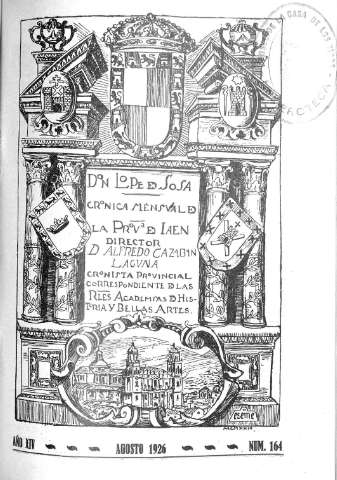 DON LOPE D SOSA
CRONICA MENSUAL D
LA PROVª D JAEN
DIRECTOR
D ALFREDO CAZABAN
LAGUNA
CRONISTA PROVINCIAL
CORRESPONDIENTE D LAS
RLES ACADEMIAS D HIS-
TORIA Y BELLAS ARTES.
AÑO XIV
AGOSTO 1926
NUM. 164